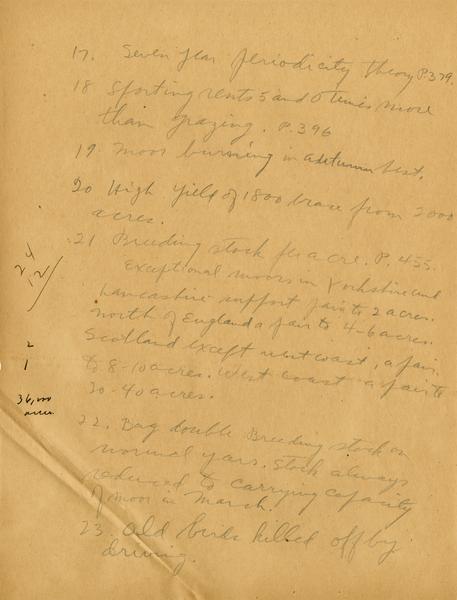 17. Seven year periodicity theory P.379.
18 Sporting rents 5 and 6 times more
than grazing. P.396
19. Moor burning in autumn best.
20 High yield of 1800 brace from 2000
acres.
21 Breeding stock per acre. P. 455.
Exceptional moors in Yorkshire and
Lancashire support pair to 2 acres.
North of England a pair to 4-6 acres.
Scotland except west coast, a pair
to 8-10 acres. West coast a pair to
30-40 acres.
22. Bag double Breeding stock on
normal years. Stock always
reduced to carrying capacity
of moor in March.
23. Old birds killed off by
driving.
2
1
36,000
acres